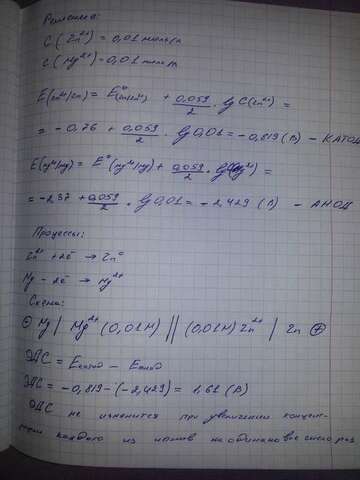 Решение:
C(Zn²⁺) = 0,01 моль/л
C(Mg²⁺) = 0,01 моль/л
E(Zn²⁺/Zn) = E°(Zn²⁺/Zn) + 0,059/2 · lg C(Zn²⁺) =
= -0,76 + 0,059/2 · lg 0,01 = -0,819 (В) - КАТОД
E(Mg²⁺/Mg) = E°(Mg²⁺/Mg) + 0,059/2 · lg C(Mg²⁺) =
= -2,37 + 0,059/2 · lg 0,01 = -2,429 (В) - АНОД
Процессы:
Zn²⁺ + 2ē → Zn⁰
Mg - 2ē → Mg²⁺
Схема:
⊖ Mg | Mg²⁺ (0,01М) || (0,01М) Zn²⁺ | Zn ⊕
ЭДС = Eкатод - Eанод
ЭДС = -0,819 - (-2,429) = 1,61 (В)
ЭДС не изменится при увеличении концен-
каждого из ионов на одинаковое число раз